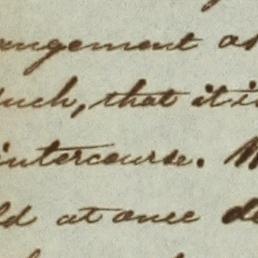 angement as
such, that it i
intercourse.
ld at once de